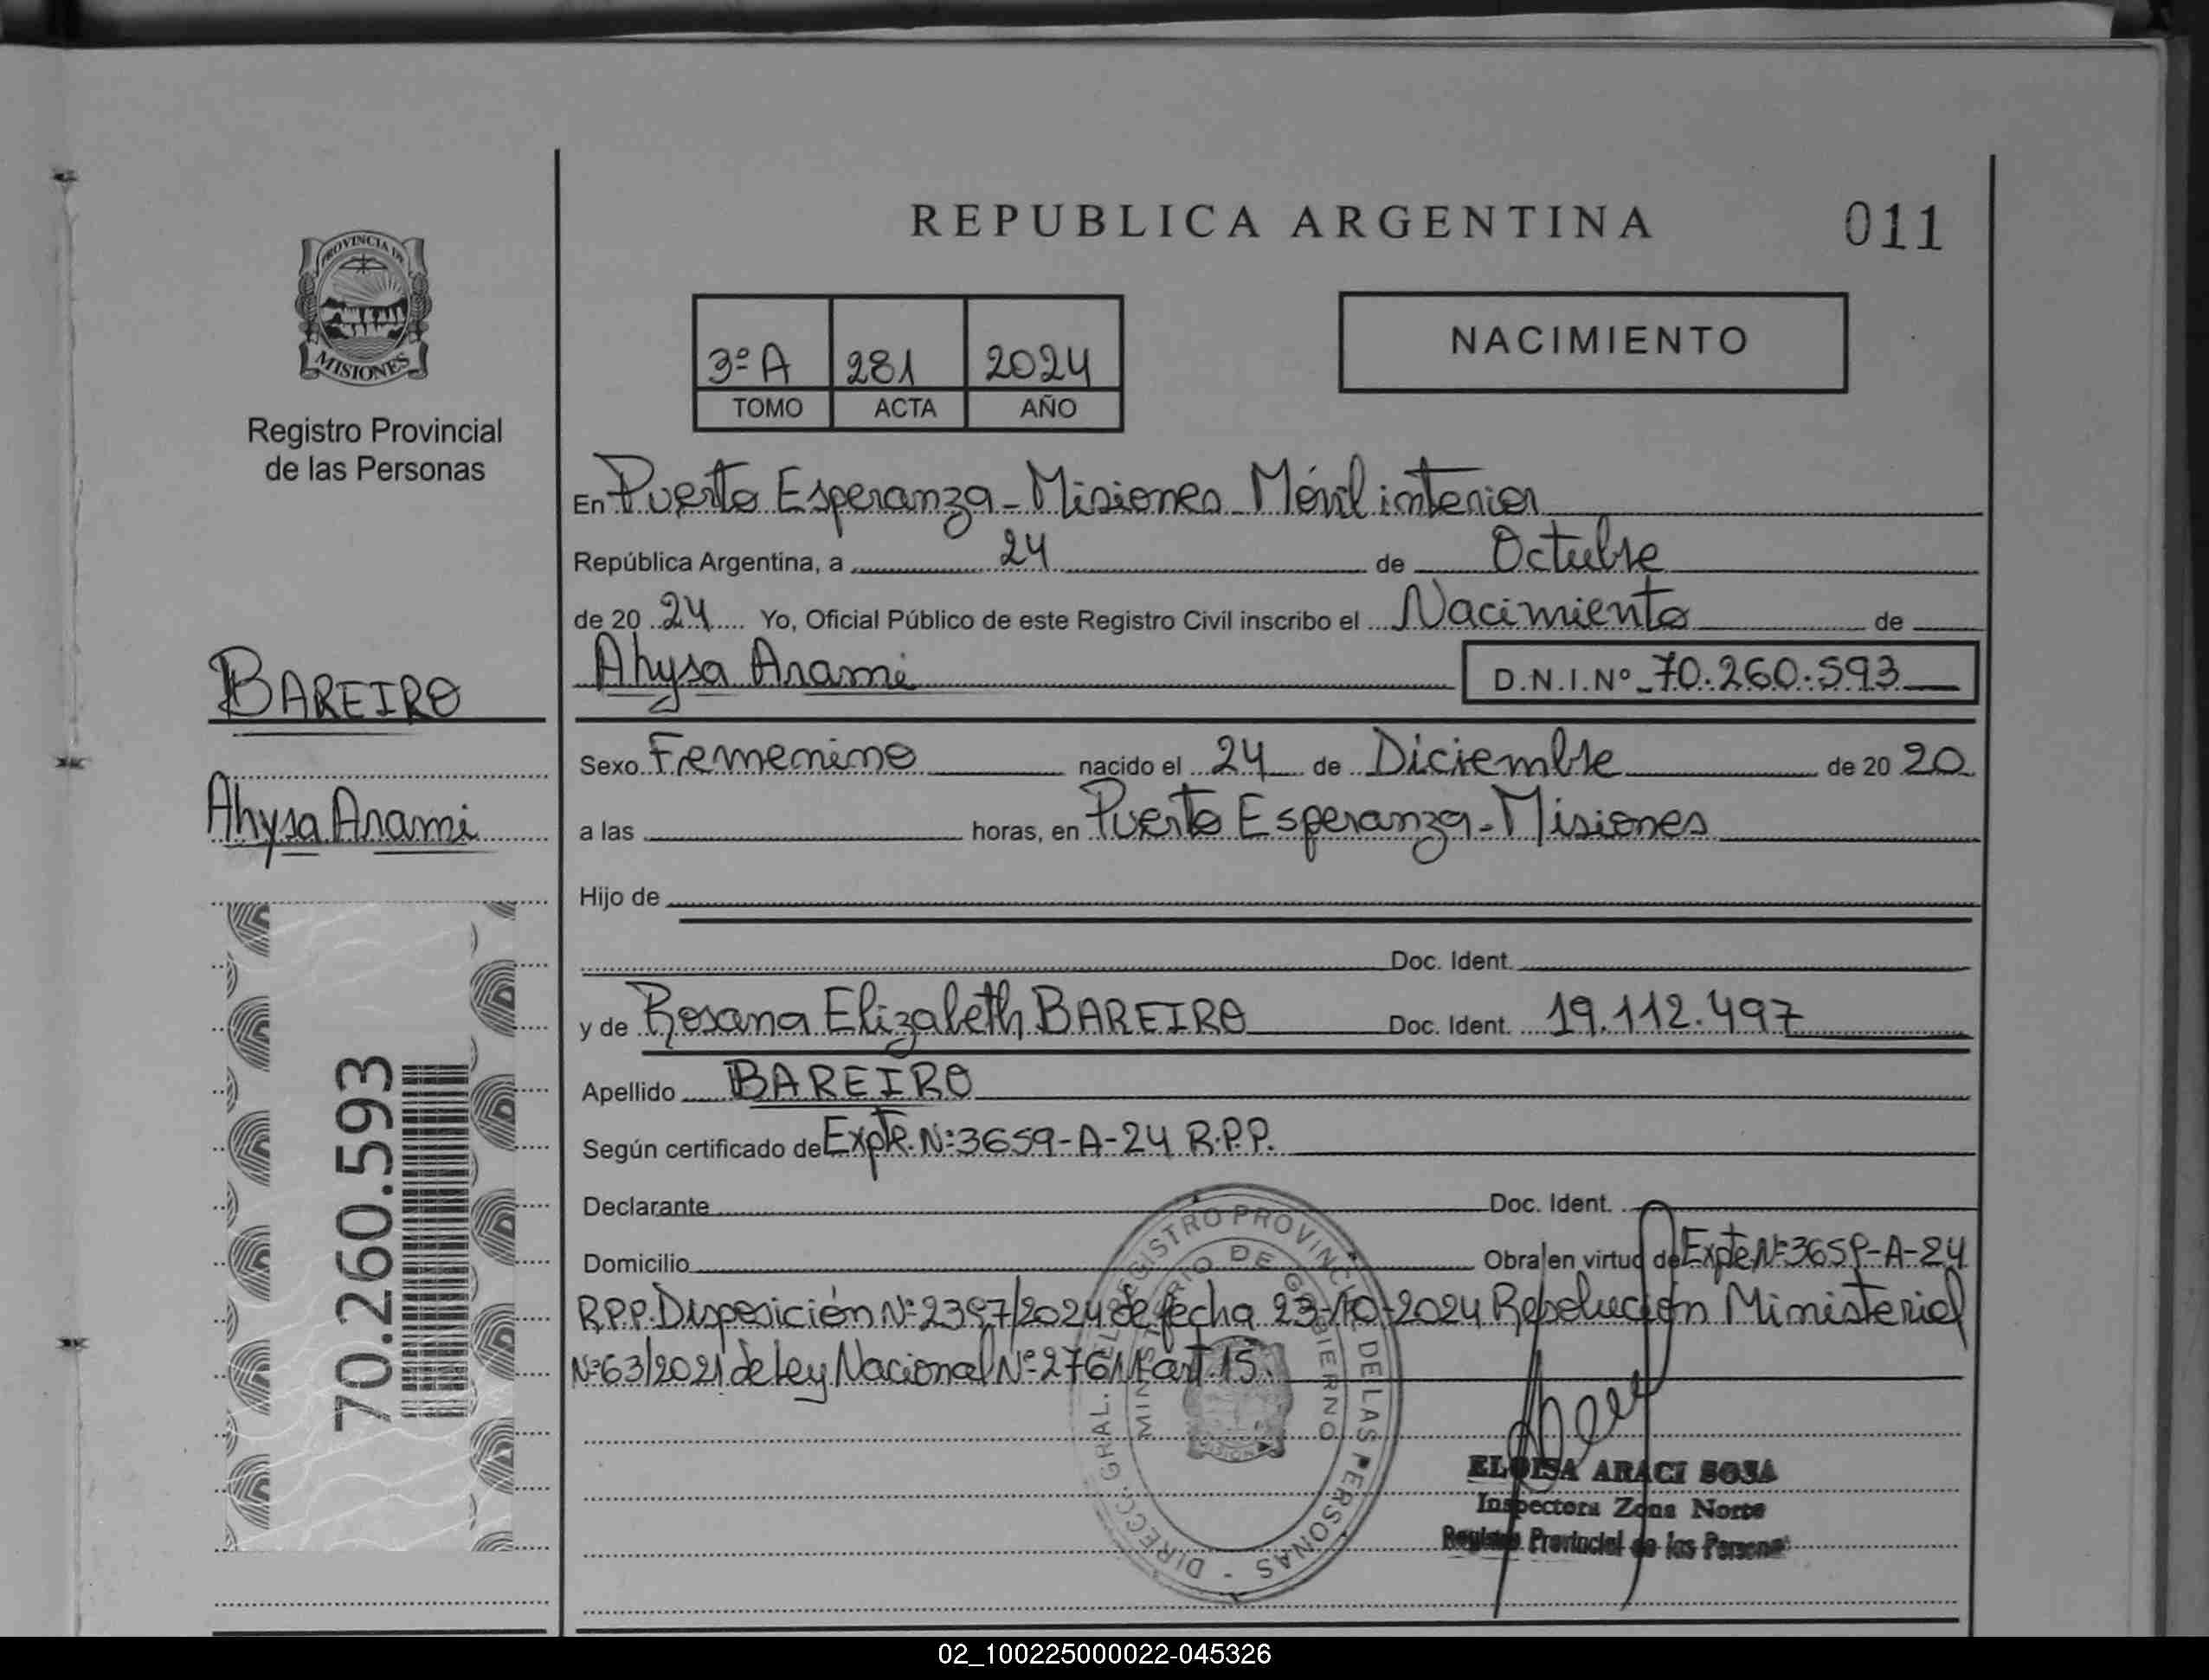 REPUBLICA ARGENTINA
011
PROVINCIA DE
MISIONES
Registro Provincial
de las Personas
3º A 281 2024
TOMO ACTA AÑO
NACIMIENTO
En Puerto Esperanza - Misiones Móvil interior
República Argentina, a 24 de Octubre
de 20 24 Yo, Oficial Público de este Registro Civil inscribo el Nacimiento de
Ahysa Arami D.N.I.Nº 70.260.593
BAREIRO
Ahysa Arami
Sexo Femenino nacido el 24 de Diciembre de 20 20
a las horas, en Puerto Esperanza - Misiones
Hijo de
Doc. Ident.
y de Rosana Elizabeth BAREIRO Doc. Ident. 19.112.497
Apellido BAREIRO
Según certificado de Expte. Nº 3659-A-24 R.P.P.
Declarante Doc. Ident.
Domicilio Obra en virtud de Expte Nº 3659-A-24
R.P.P. Disposición Nº 2397/2024 de fecha 23-10-2024 Resolución Ministerial
Nº 63/2021 de Ley Nacional Nº 27611 art. 15.
70.260.593
DIRECC. GRAL. DEL REGISTRO PROVINCIAL DE LAS PERSONAS -
MINISTERIO DE GOBIERNO
ELOISA ARACI SOSA
Inspectora Zona Norte
Registro Provincial de las Personas
02_100225000022-045326